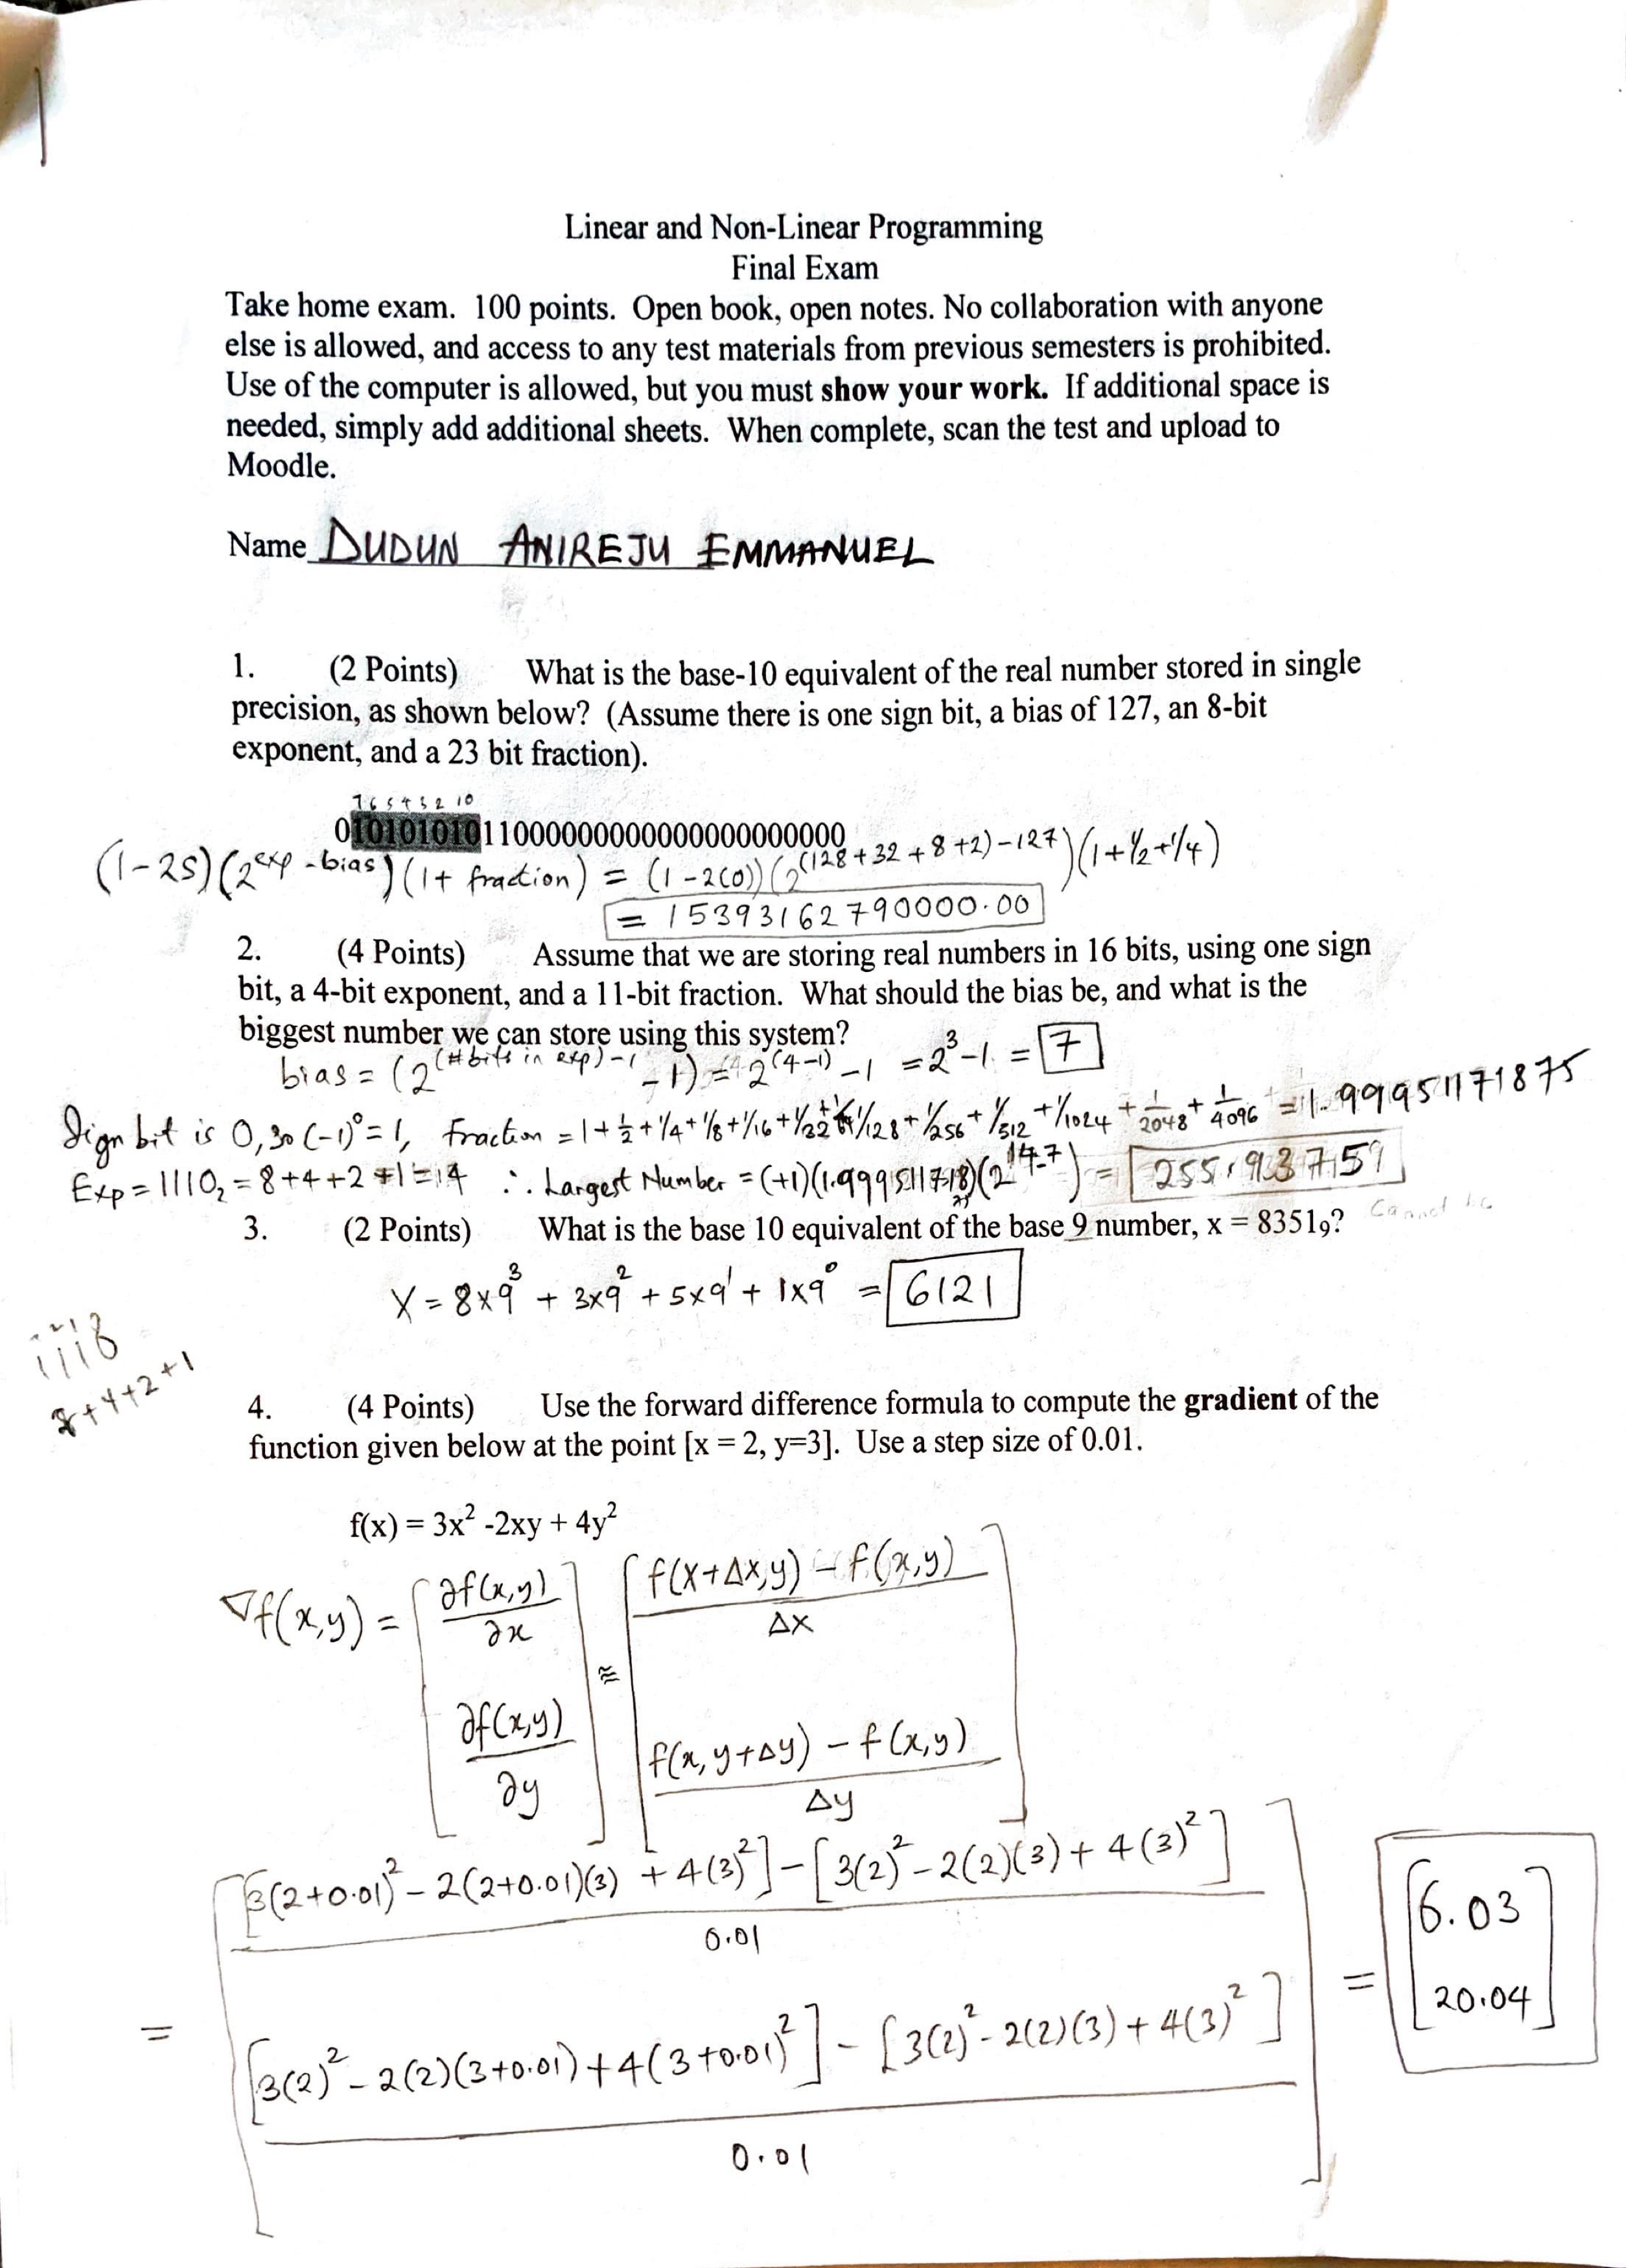 Linear and Non-Linear Programming
Final Exam
Take home exam. 100 points. Open book, open notes. No collaboration with anyone
else is allowed, and access to any test materials from previous semesters is prohibited.
Use of the computer is allowed, but you must show your work. If additional space is
needed, simply add additional sheets. When complete, scan the test and upload to
Moodle.
Name DUDUN ANIREJU EMMANUEL
1. (2 Points) What is the base-10 equivalent of the real number stored in single
precision, as shown below? (Assume there is one sign bit, a bias of 127, an 8-bit
exponent, and a 23 bit fraction).
7 6 5 4 3 2 1 0
01010101011000000000000000000000
(1-2S)(2^exp-bias)(1+ fraction) = (1-2(0))(2^(128+32+8+2)-127)(1+1/2+1/4)
= 15393162790000.00
2. (4 Points) Assume that we are storing real numbers in 16 bits, using one sign
bit, a 4-bit exponent, and a 11-bit fraction. What should the bias be, and what is the
biggest number we can store using this system?
bias = (2^(#bits in exp)-1 -1) = 2^(4-1) -1 = 2^3 -1 = 7
Sign bit is 0, so (-1)^0 = 1, Fraction = 1+1/2+1/4+1/8+1/16+1/32+1/64+1/128+1/256+1/512+1/1024+1/2048+1/4096 = 1.99951171875
Exp = 1110₂ = 8+4+2+1=14 ∴ Largest Number = (+1)(1.999511718)(2^14-7) = 255.93759
3. (2 Points) What is the base 10 equivalent of the base 9 number, x = 8351₉?
X = 8x9³ + 3x9² + 5x9¹ + 1x9⁰ = 6121
8+4+2+1
4. (4 Points) Use the forward difference formula to compute the gradient of the
function given below at the point [x = 2, y=3]. Use a step size of 0.01.
f(x) = 3x² -2xy + 4y²
∇f(x,y) = [∂f(x,y)/∂x ≈ [f(x+Δx,y) - f(x,y)/Δx
∂f(x,y)/∂y] f(x,y+Δy) - f(x,y)/Δy]
[[3(2+0.01)² - 2(2+0.01)(3) + 4(3)²] - [3(2)² - 2(2)(3) + 4(3)²]
0.01
= [6.03
20.04]
= [3(2)² - 2(2)(3+0.01) + 4(3+0.01)²] - [3(2)² - 2(2)(3) + 4(3)²]]
0.01